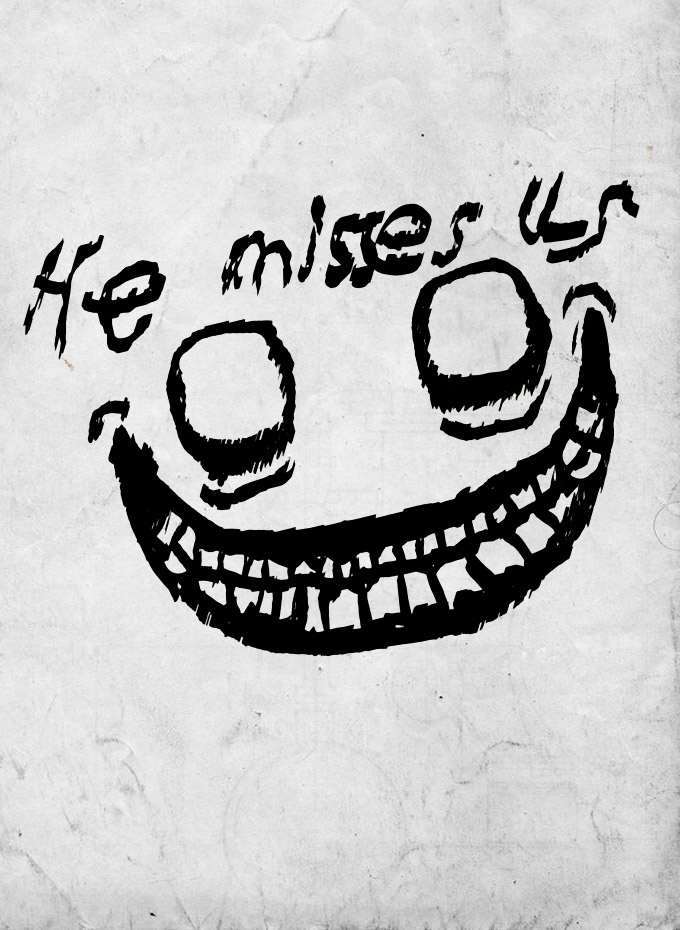 He misses us